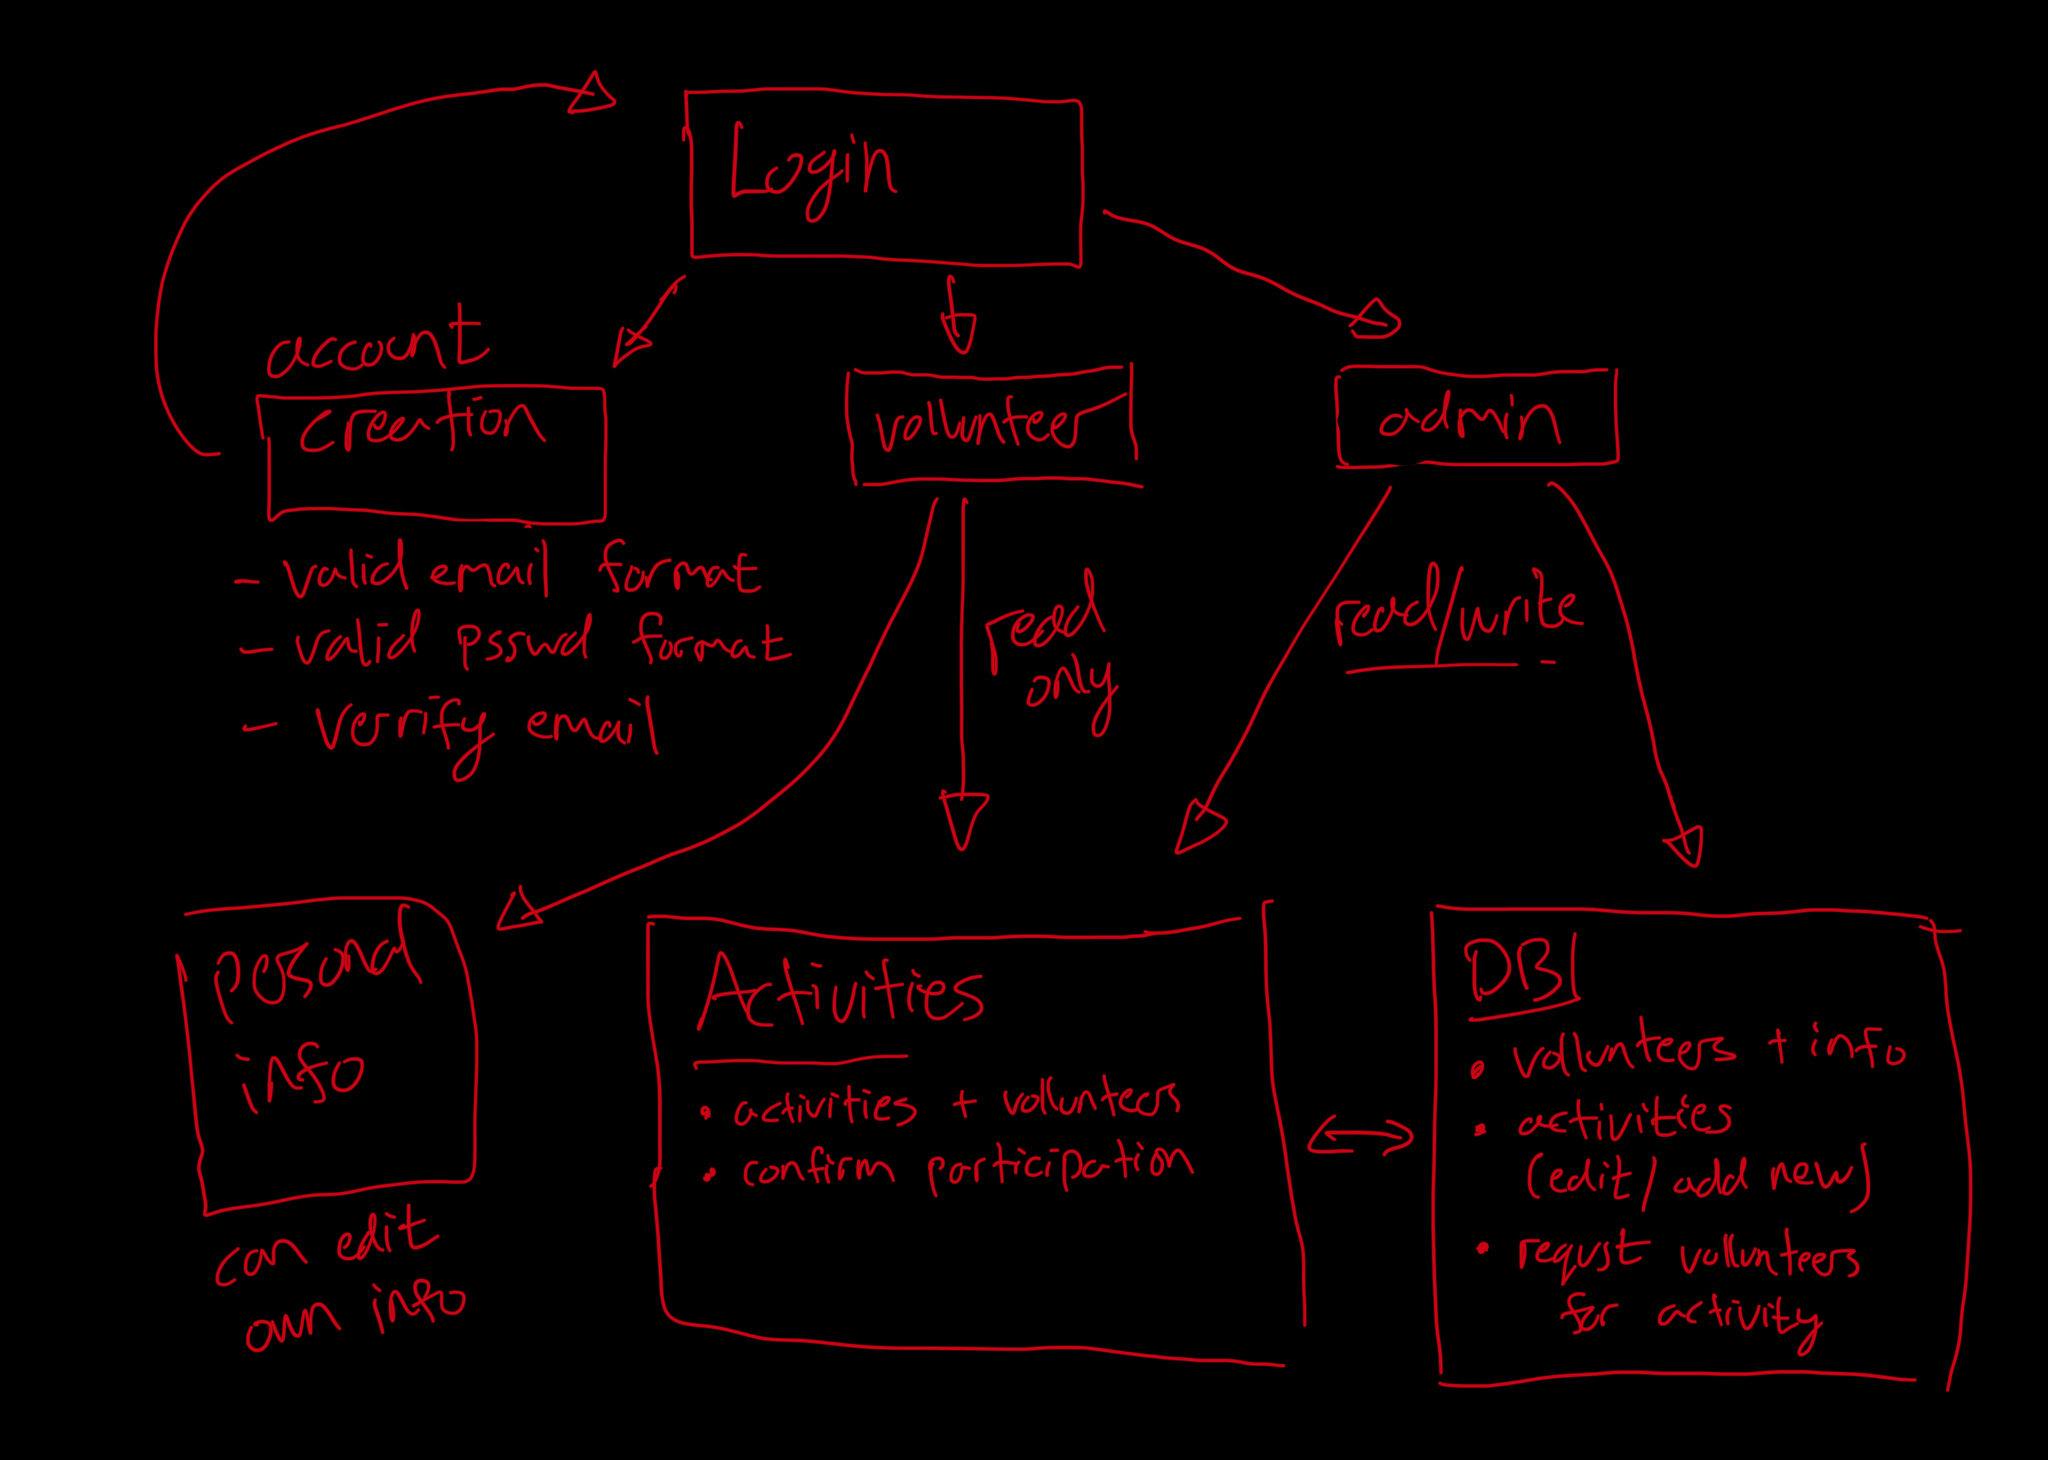 Login
account
creation
- valid email format
- valid psswd format
- verify email
volunteer
admin
read
only
read/write
Posonal
info
can edit
own info
Activities
• activities + volunteers
• confirm participation
DB
• volunteers + info
• activities
(edit/add new)
• requst volunteers
for activity